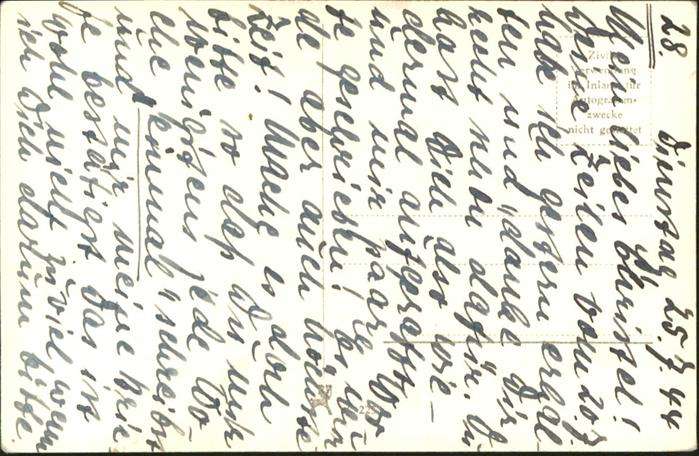 28. Dienstag 25.7.44
Mein liebes Christel!
Deine Zeilen vom 20.7.
habe ich gestern erhal-
ten und danke Dir
recht dafür. Du
hast Dich also wie-
dermal aufgerafft
und mir paar Wor-
te geschrieben! Es wur
de aber auch höchste
Zeit! Mache es doch
bitte so daß Du mir
wenigstens jede Wo-
che "einmal" schreibst
und mir meine Brie-
fe bestätigst. Das ist
wohl nicht zuviel wenn
ich Dich darum bitte.
Verwendung
im Inland für
Autogramm-
zwecke
nicht gestattet